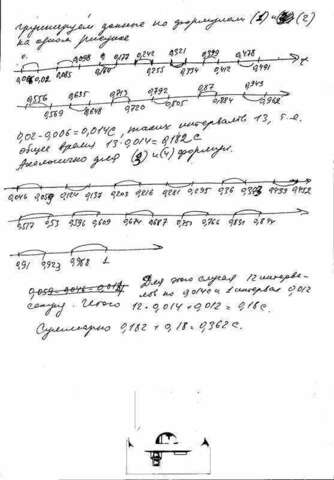 Группируем данные по формулам (1) и (2)
на одном рисунке
0,098 0,177 0,242 0,321 0,399 0,478
0,006 0,02 0,085 0,255 0,334 0,412 0,491
0,556 0,635 0,713 0,792 0,87 0,949
0,569 0,648 0,720 0,805 0,884 0,962
0,02-0,006=0,014с, таких интервалов 13, т.е.
общее время 13·0,014=0,182 с
Аналогично для (3) и (4) формул.
0,046 0,059 0,124 0,137 0,203 0,216 0,281 0,295 0,36 0,439 0,452
0,517 0,53 0,596 0,609 0,674 0,687 0,766 0,831
0,91 0,923 0,988 1
Для этого случая 12 интерва-
лов по 0,014 и 1 интервал 0,012
секунд. Итого 12·0,014+0,012=0,18с.
Суммарно 0,182+0,18=0,362с.